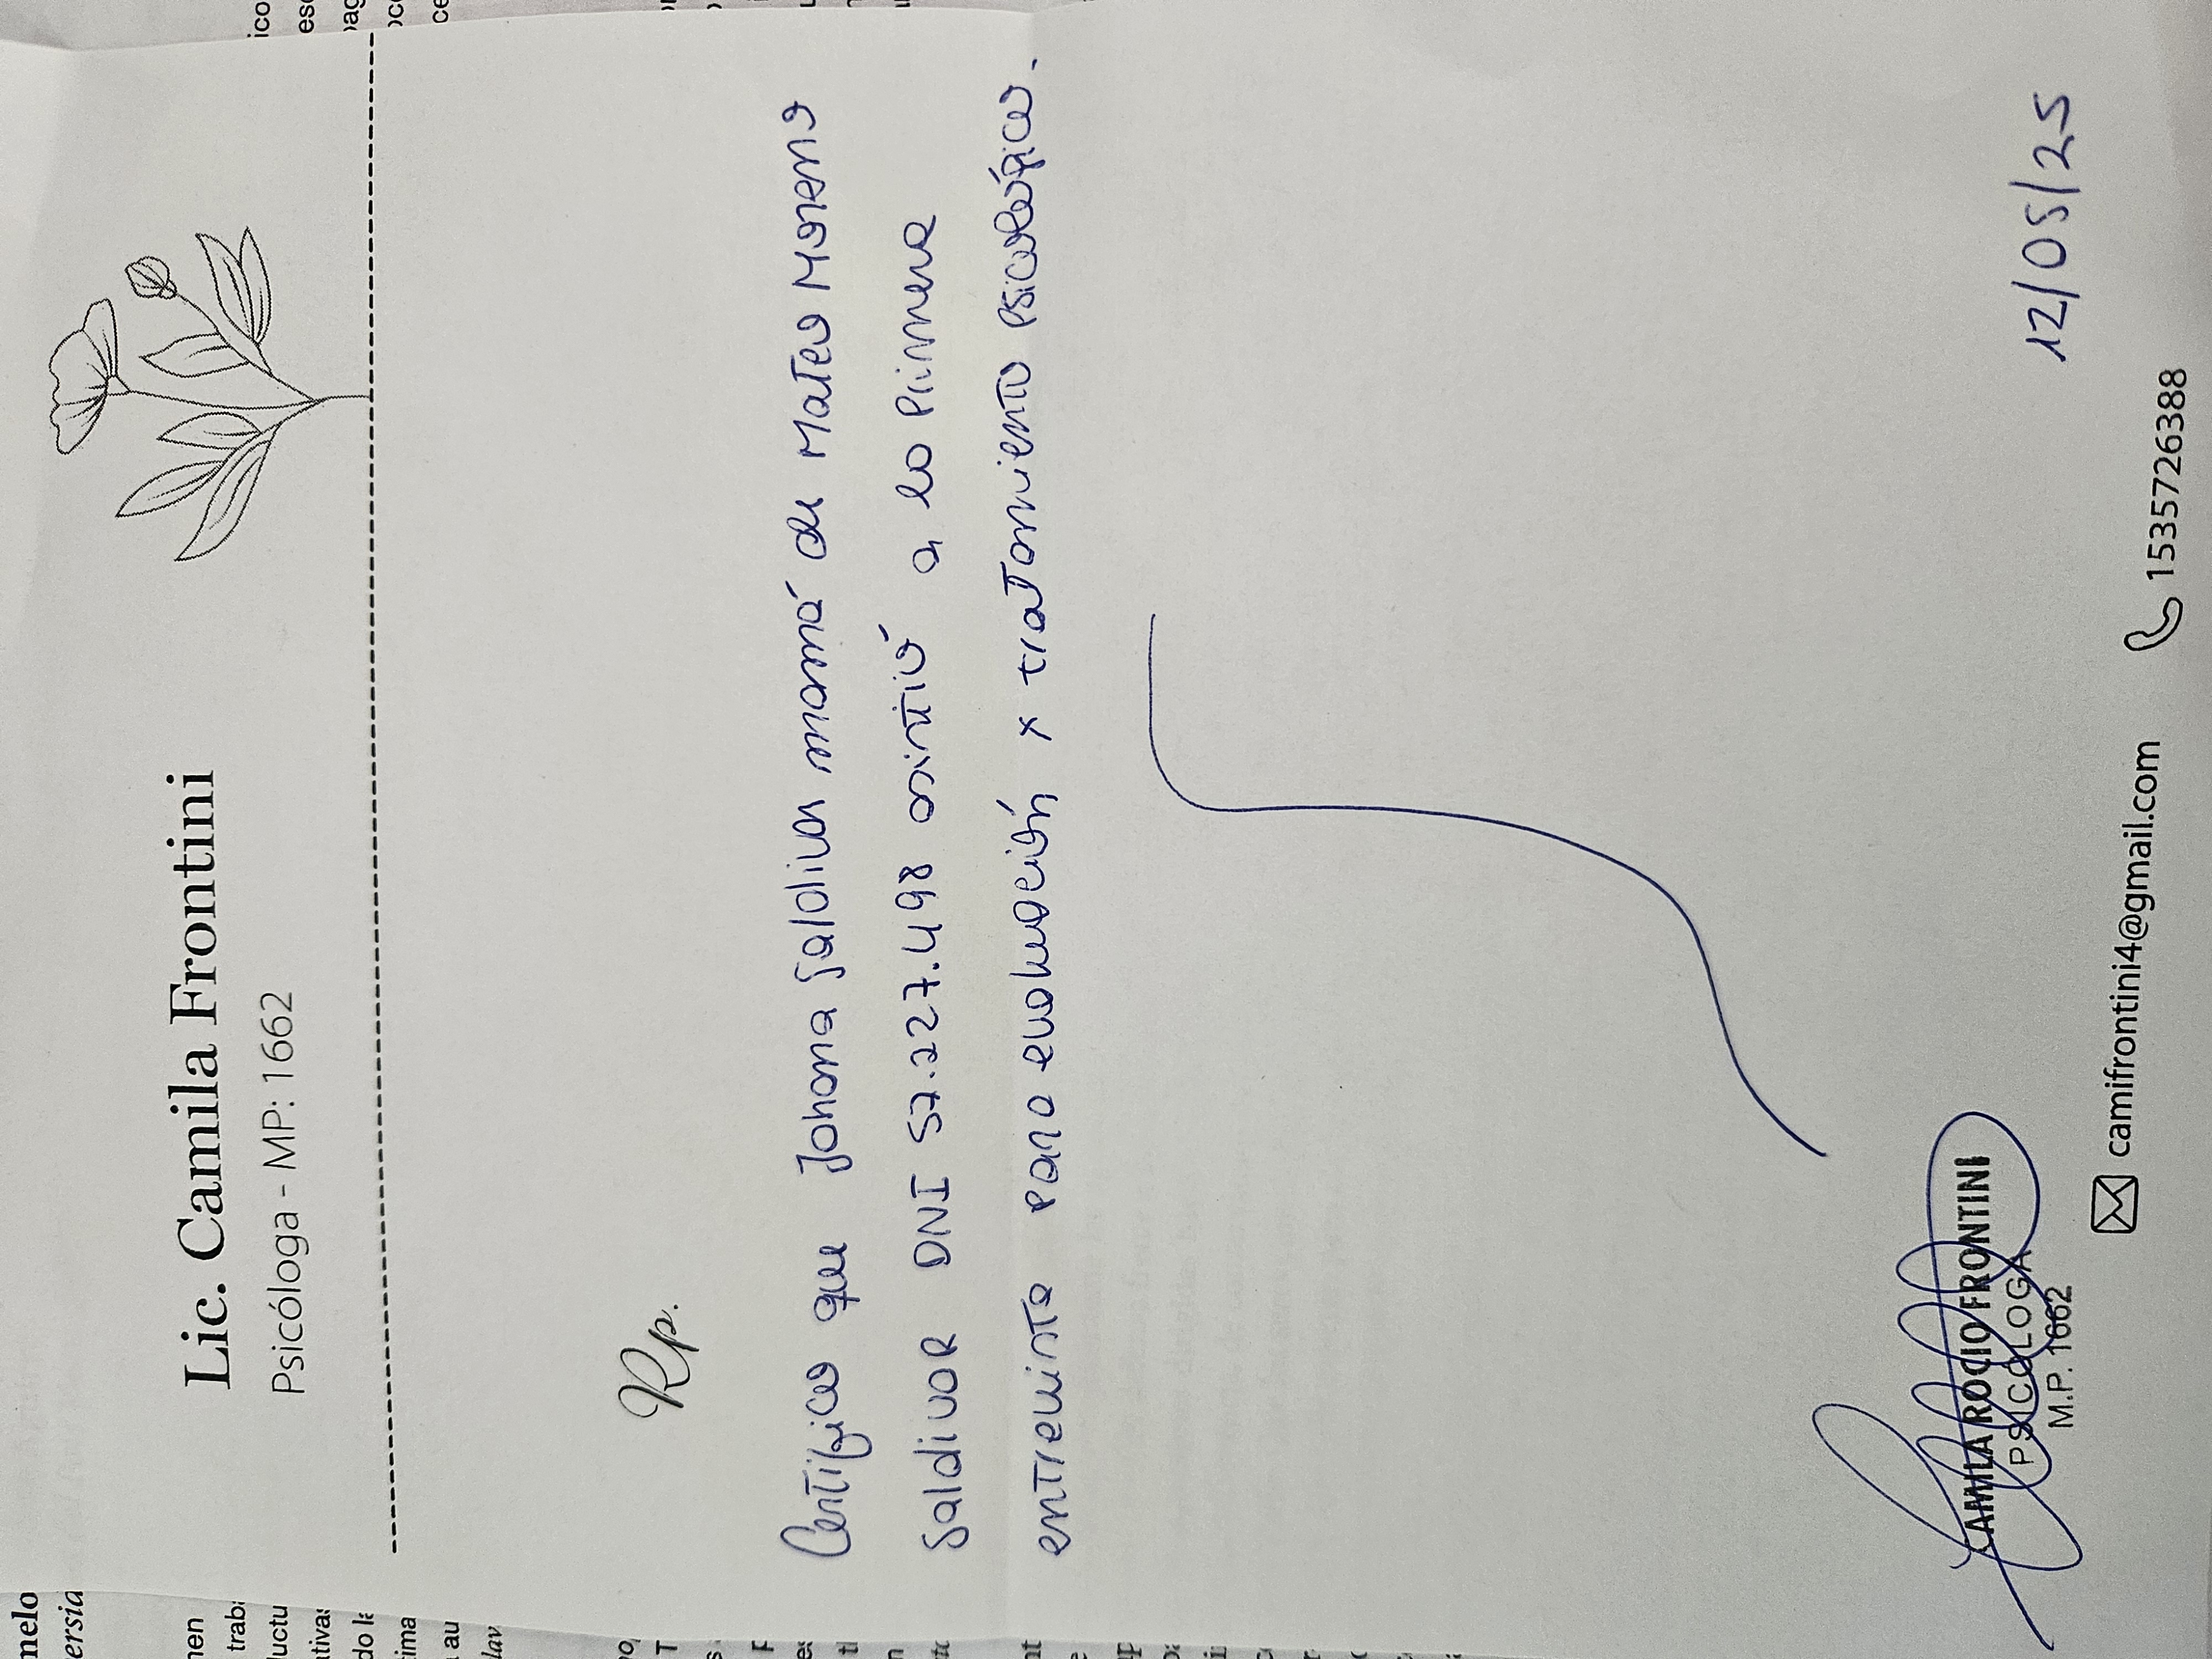 Lic. Camila Frontini
Psicóloga - MP: 1662
Rp.
Certifico que Johana Saldivar mamá de Mateo Moreno
Saldivar DNI 57.227.498 asistió a la Primera
entrevista para evaluación x tratamiento psicológico.
12/05/25
CAMILA ROCIO FRONTINI
PSICOLOGA
M.P. 1662
camifrontini4@gmail.com 1535726388